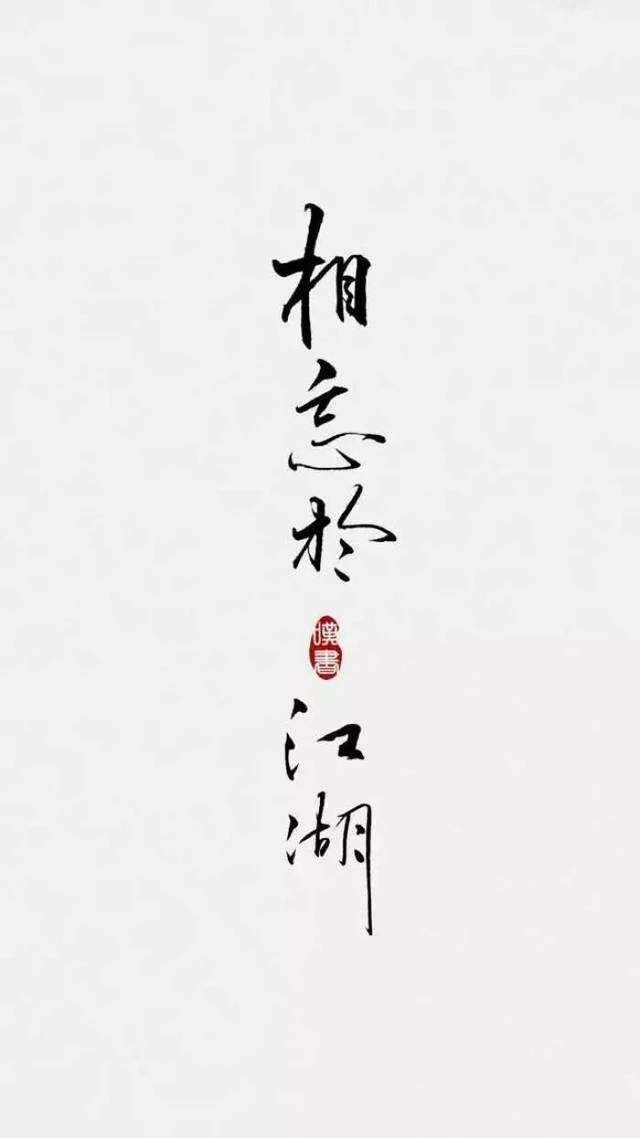 相忘於
書
江湖